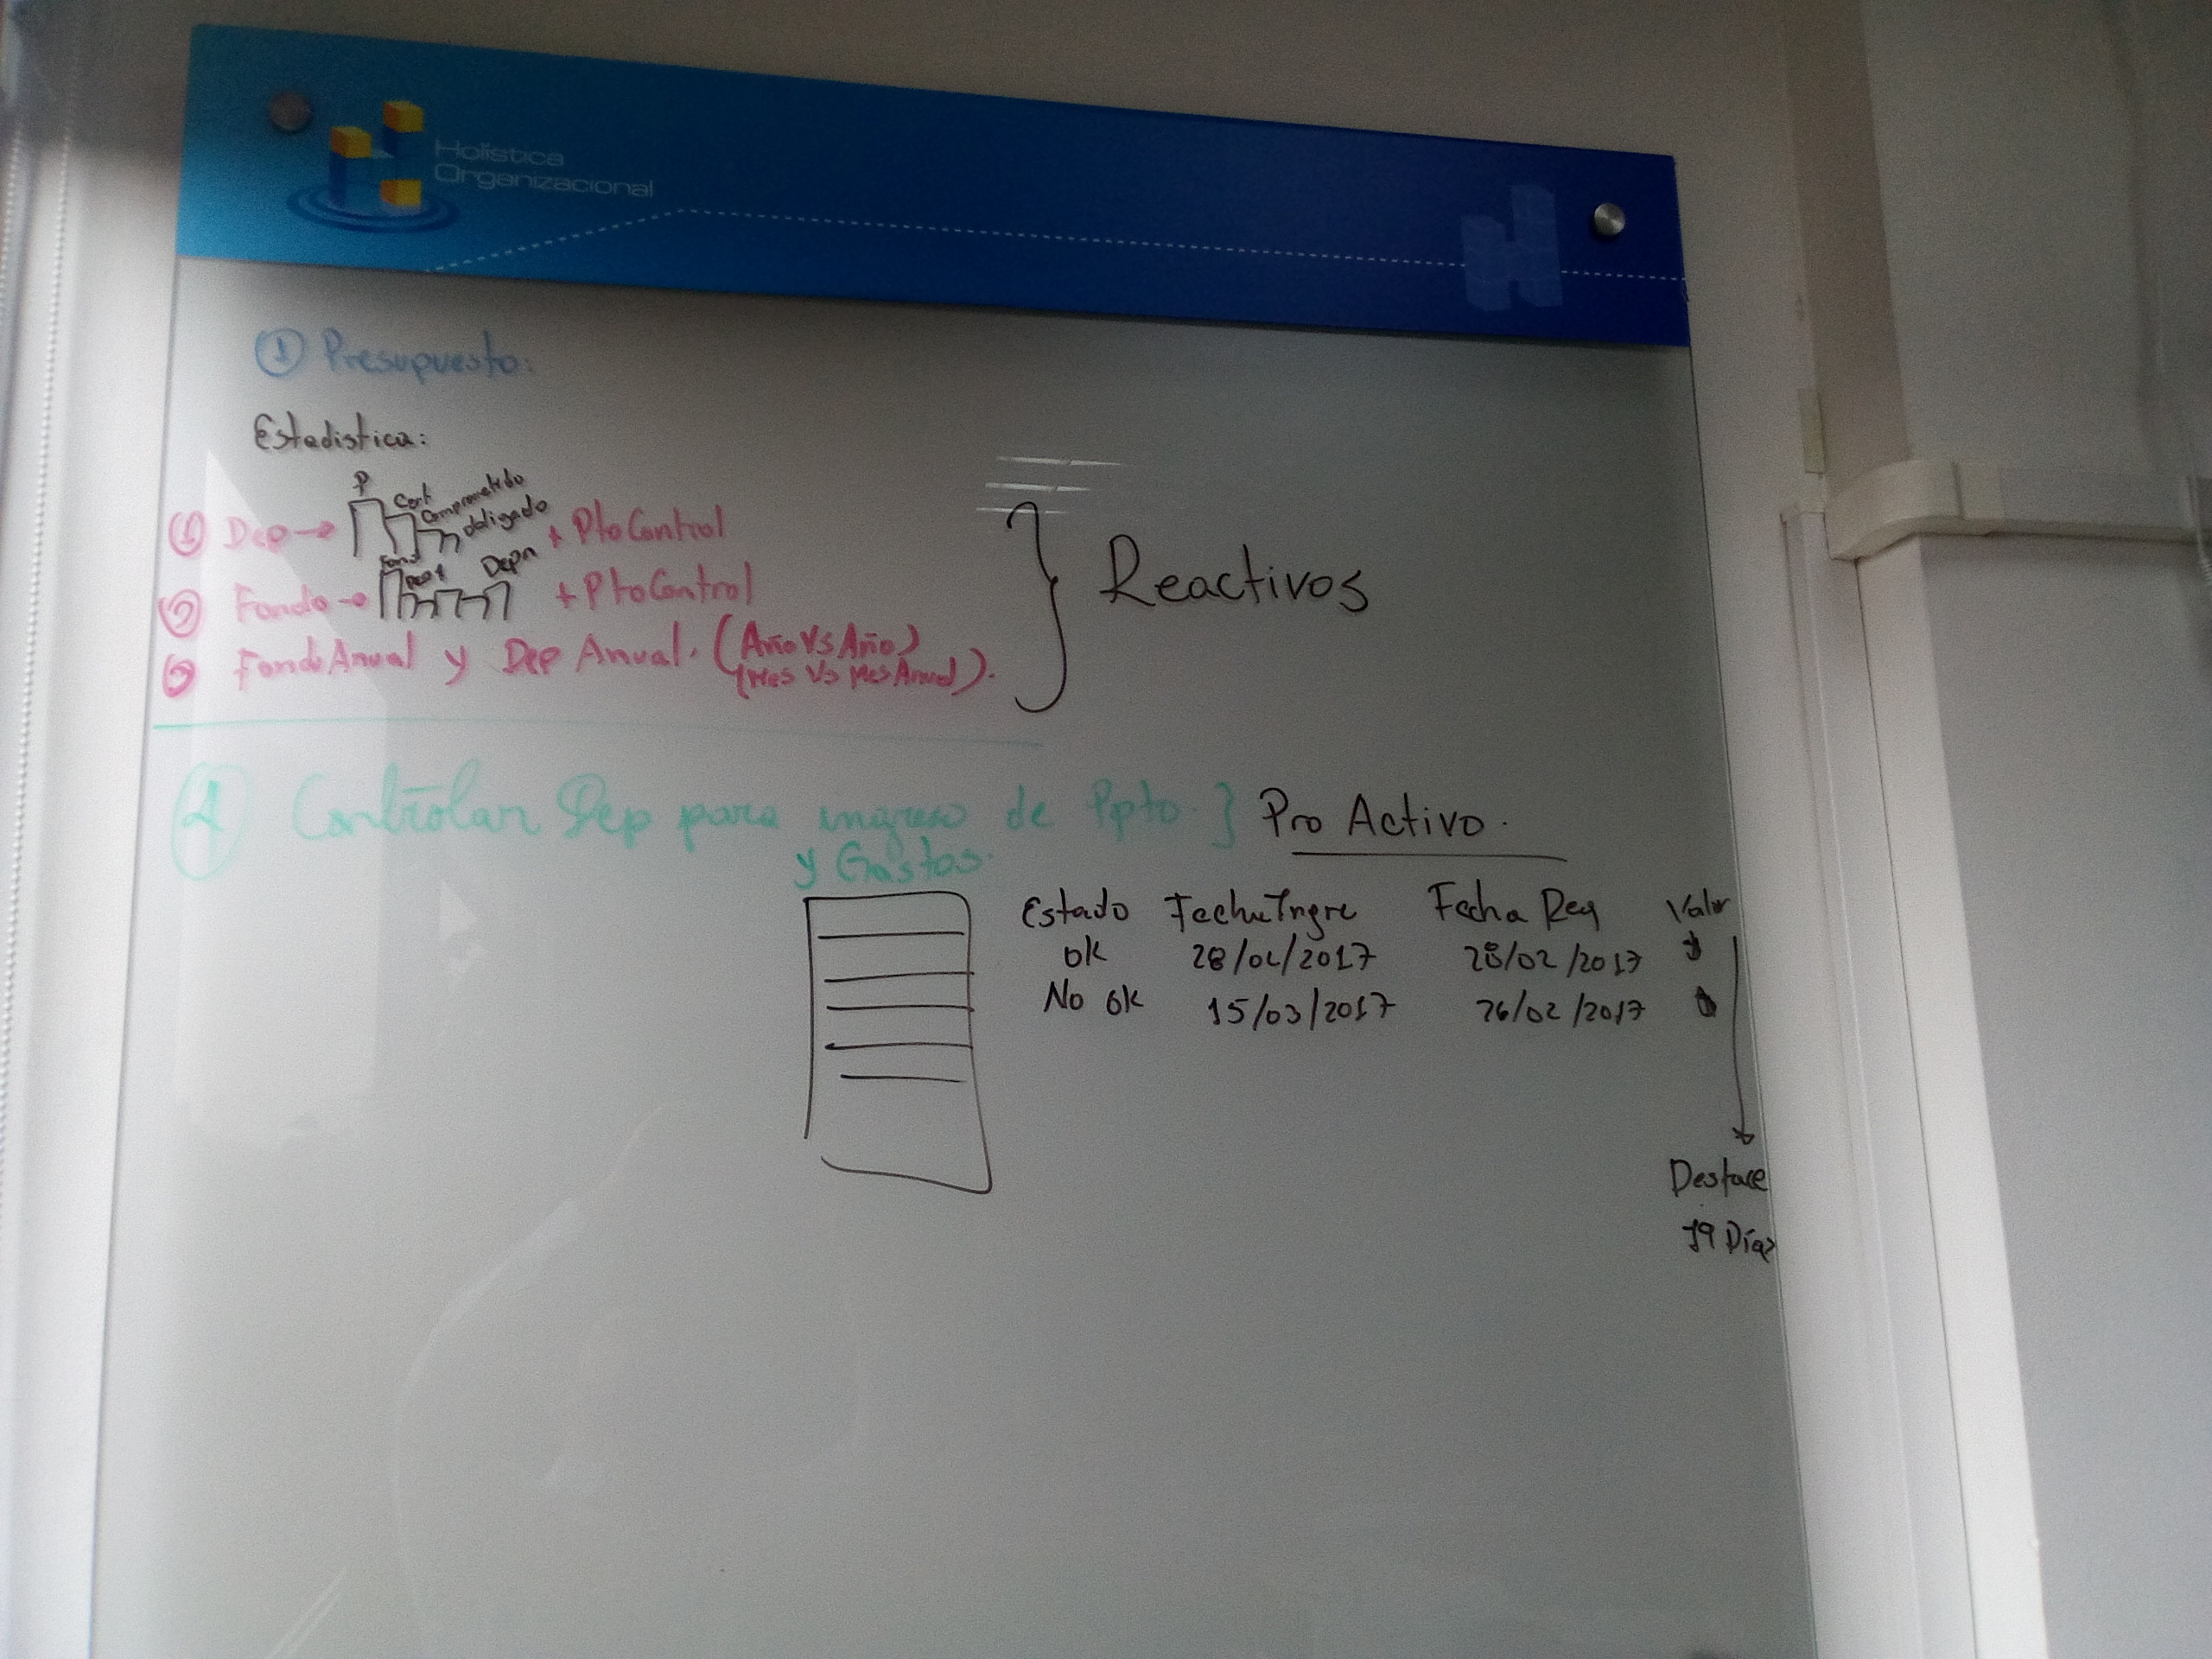 Holística
Organizacional
① Presupuesto:
Estadistica:
① Dep → P Cert Comprometido obligado + Pto Control
② Fondo → Fond Dep1 Depn + Pto Control
③ Fondo Anual y Dep Anual. (Año Vs Año)
(Mes Vs Mes Anual).
} Reactivos
2 Controlar Dep para ingreso de Ppto. } Pro Activo.
y Gastos.
Estado Fecha Ingre Fecha Req Valor
ok 28/02/2017 28/02/2017
No ok 15/03/2017 26/02/2017
Desface
19 Días